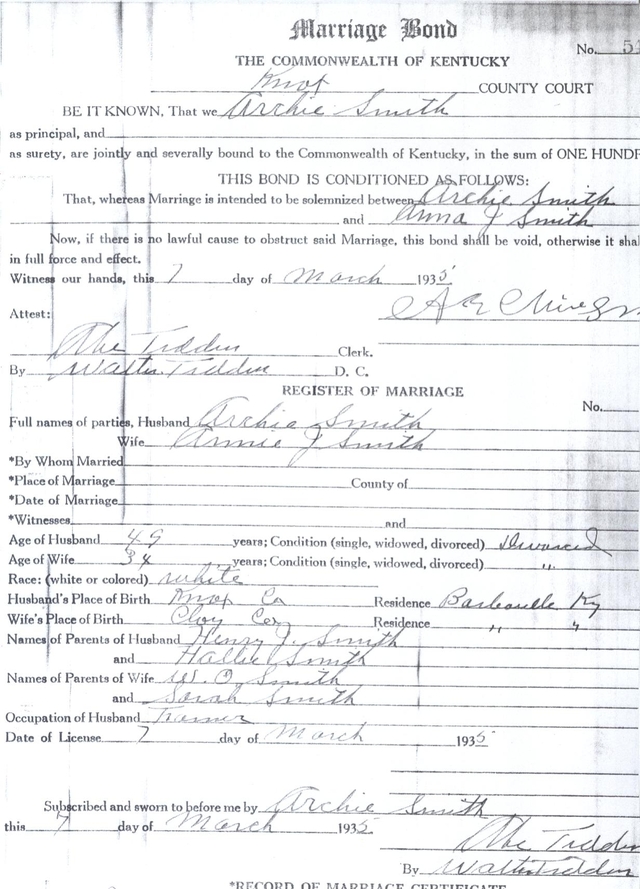 Marriage Bond
No. 54
THE COMMONWEALTH OF KENTUCKY
Knox COUNTY COURT
BE IT KNOWN, That we Archie Smith
as principal, and
as surety, are jointly and severally bound to the Commonwealth of Kentucky, in the sum of ONE HUNDR
THIS BOND IS CONDITIONED AS FOLLOWS:
That, whereas Marriage is intended to be solemnized between Archie Smith
and Anna J Smith
Now, if there is no lawful cause to obstruct said Marriage, this bond shall be void, otherwise it shal
in full force and effect.
Witness our hands, this 7 day of March 1935
Attest:
Clerk.
By Walter D. C.
REGISTER OF MARRIAGE
No.
Full names of parties, Husband Archie Smith
Wife Annie J Smith
*By Whom Married
*Place of Marriage County of
*Date of Marriage
*Witnesses and
Age of Husband 49 years; Condition (single, widowed, divorced) Divorced
Age of Wife 34 years; Condition (single, widowed, divorced) "
Race: (white or colored) white
Husband's Place of Birth Knox Co Residence Barbourville Ky
Wife's Place of Birth Clay Co Residence " "
Names of Parents of Husband Henry J. Smith
and Hallie Smith
Names of Parents of Wife W. O. Smith
and Sarah Smith
Occupation of Husband Farmer
Date of License 7 day of March 1935
Subscribed and sworn to before me by Archie Smith
this 7 day of March 1935
By Walter
*RECORD OF MARRIAGE CERTIFICATE